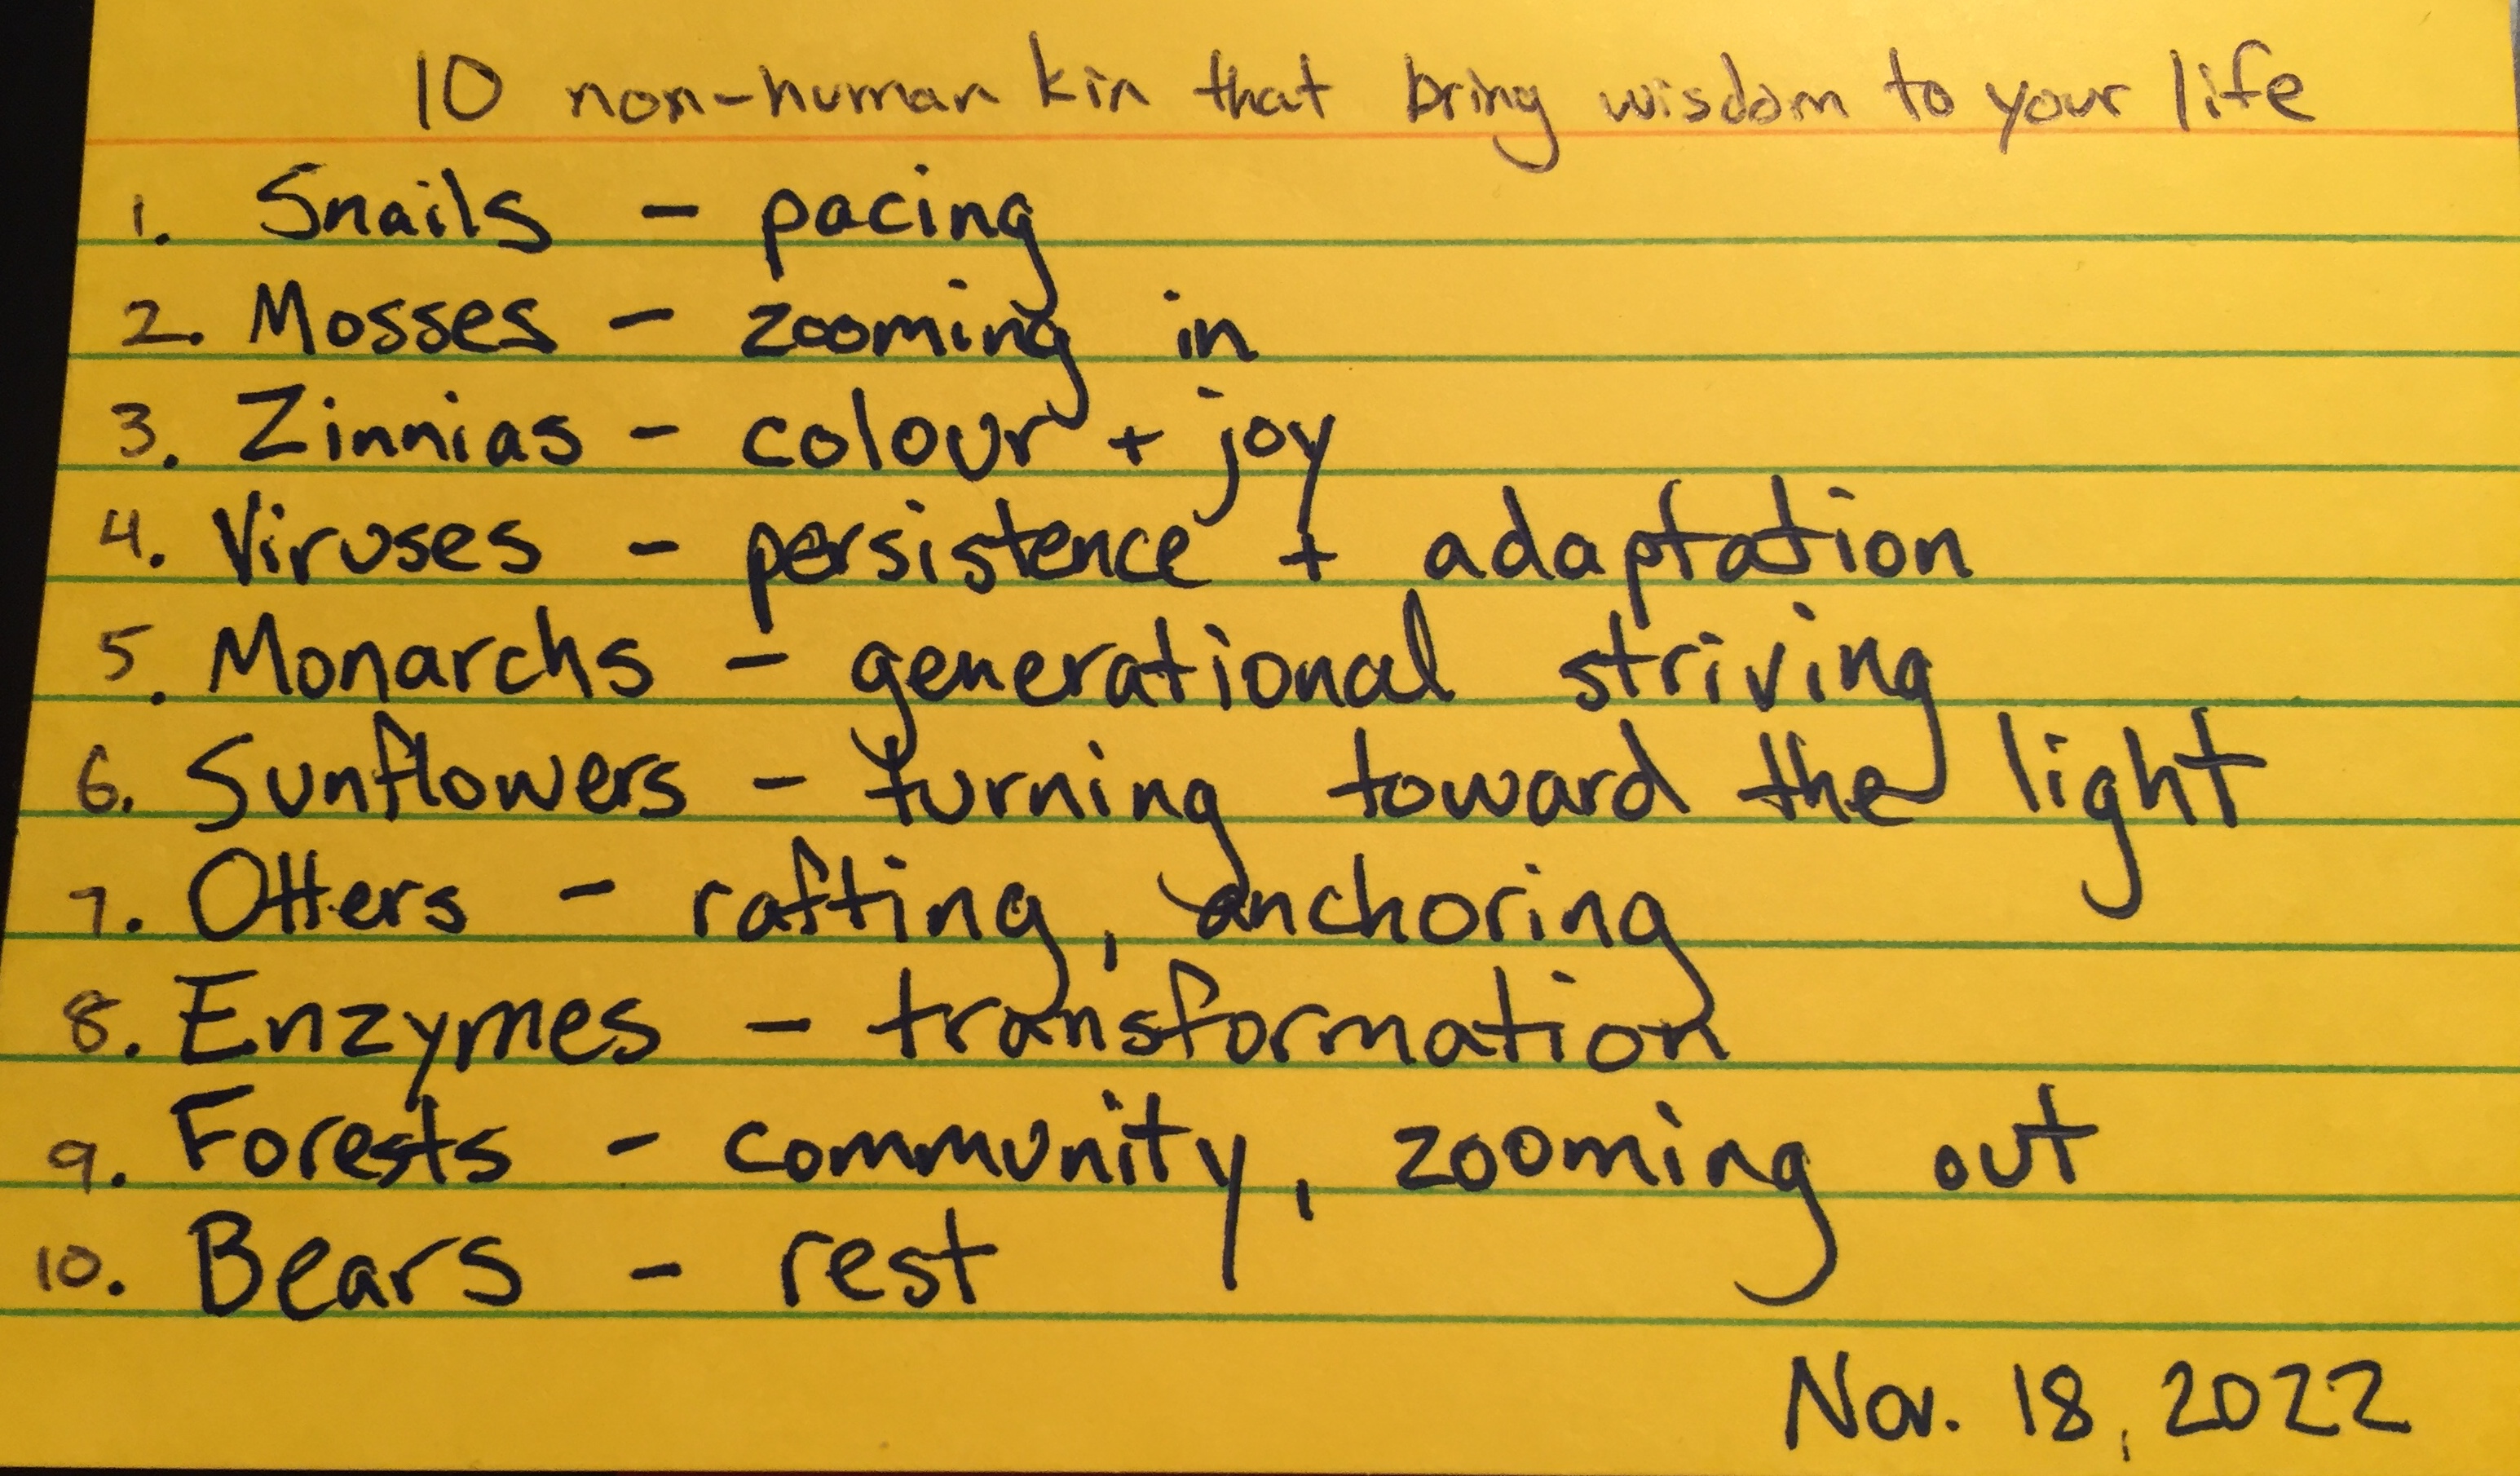 10 non-human kin that bring wisdom to your life
1. Snails - pacing
2. Mosses - zooming in
3. Zinnias - colour + joy
4. Viruses - persistence + adaptation
5. Monarchs - generational striving
6. Sunflowers - turning toward the light
7. Otters - rafting, anchoring
8. Enzymes - transformation
9. Forests - community, zooming out
10. Bears - rest
Nov. 18, 2022